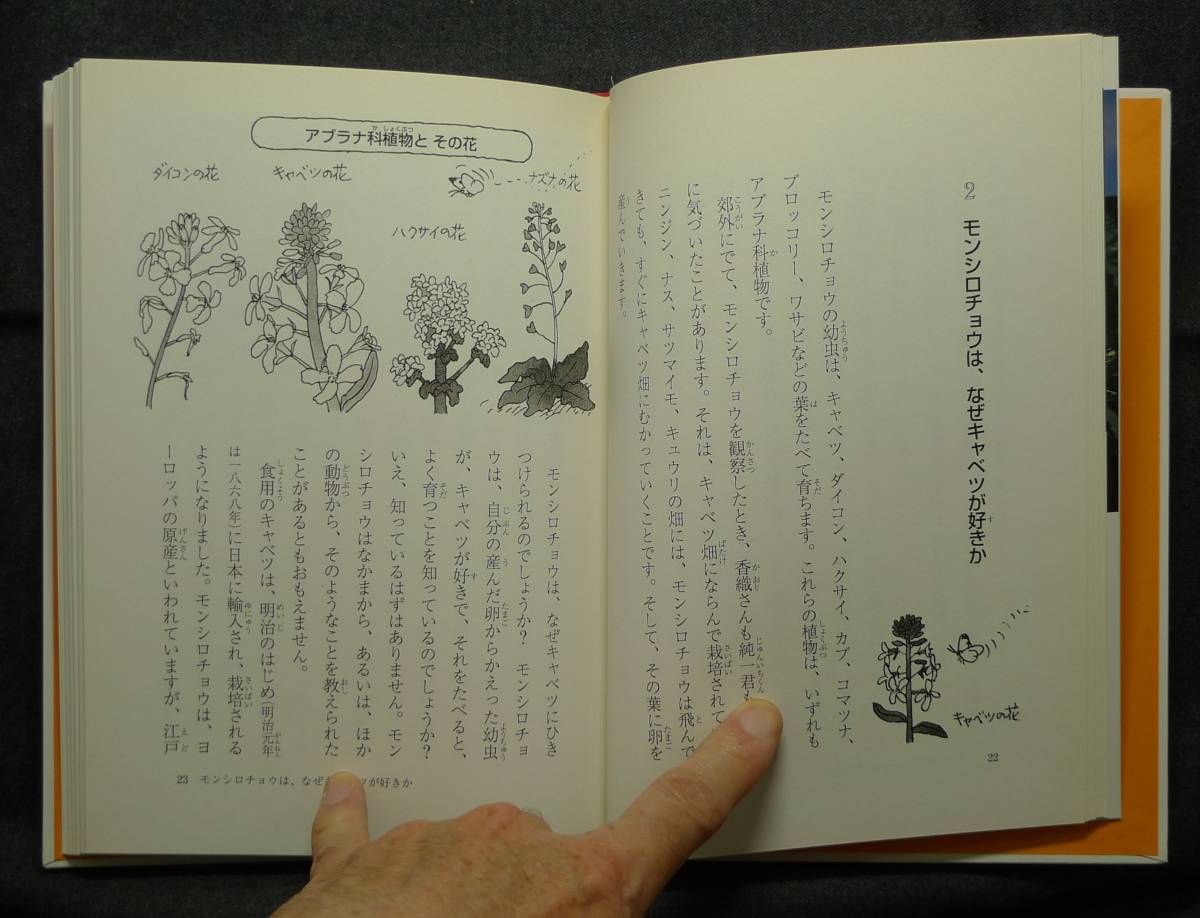 2 モンシロチョウは、なぜキャベツが好きか
モンシロチョウの幼虫は、キャベツ、ダイコン、ハクサイ、カブ、コマツナ、
ブロッコリー、ワサビなどの葉をたべて育ちます。これらの植物は、いずれも
アブラナ科植物です。
郊外にでて、モンシロチョウを観察したとき、香織さんも純一君も
に気づいたことがあります。それは、キャベツ畑にならんで栽培されて
ニンジン、ナス、サツマイモ、キュウリの畑には、モンシロチョウは飛んで
きても、すぐにキャベツ畑にむかっていくことです。そして、その葉に卵を
産んでいきます。
キャベツの花
22
アブラナ科植物と その花
ダイコンの花
キャベツの花
ハクサイの花
ナズナの花
モンシロチョウは、なぜキャベツにひき
つけられるのでしょうか? モンシロチョ
ウは、自分の産んだ卵からかえった幼虫
が、キャベツが好きで、それをたべると、
よく育つことを知っているのでしょうか?
いえ、知っているはずはありません。モン
シロチョウはなかまから、あるいは、ほか
の動物から、そのようなことを教えられた
ことがあるともおもえません。
食用のキャベツは、明治のはじめ(明治元年
は一八六八年)に日本に輸入され、栽培される
ようになりました。モンシロチョウは、ヨ
ーロッパの原産といわれていますが、江戸
23 モンシロチョウは、なぜ ツが好きか